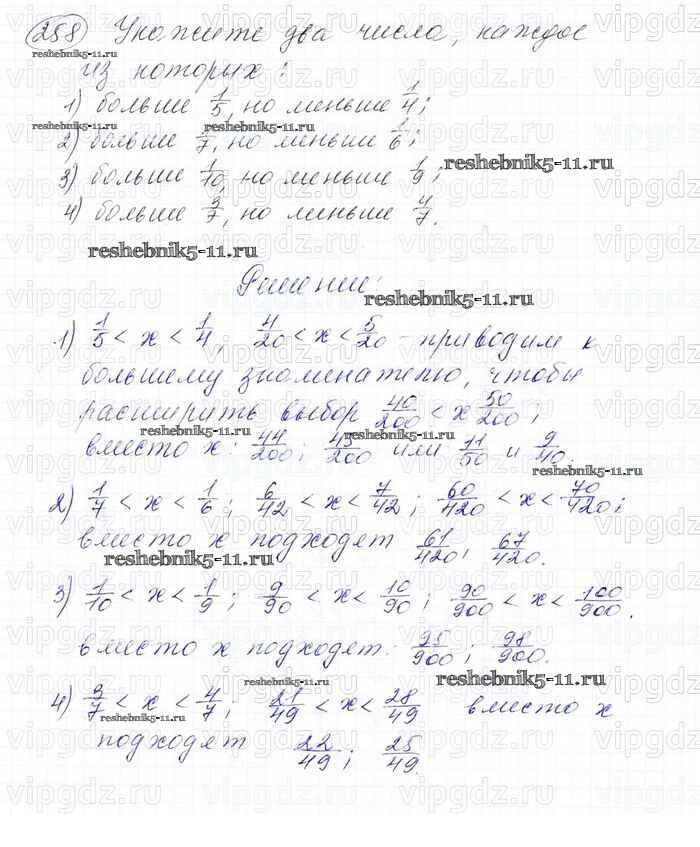 258 Укажите два числа, каждое
из которых:
1) больше 1/5, но меньше 1/4;
2) больше 1/7, но меньше 1/6;
3) больше 1/10, но меньше 1/9;
4) больше 3/7, но меньше 4/7.
Решение:
1) 1/5 < x < 1/4, 4/20 < x < 5/20 - приводим к
большему знаменателю, чтобы
расширить выбор 40/200 < x 50/200;
вместо x: 44/200; 45/200 или 11/50 и 9/40.
2) 1/7 < x < 1/6; 6/42 < x < 7/42; 60/420 < x < 70/420;
вместо x подходят 61/420, 67/420.
3) 1/10 < x < 1/9; 9/90 < x < 10/90; 90/900 < x < 100/900.
вместо x подходят: 95/900; 98/900.
4) 3/7 < x < 4/7; 21/49 < x < 28/49 вместо x
подходят 22/49; 25/49.
reshebnik5-11.ru
vipgdz.ru